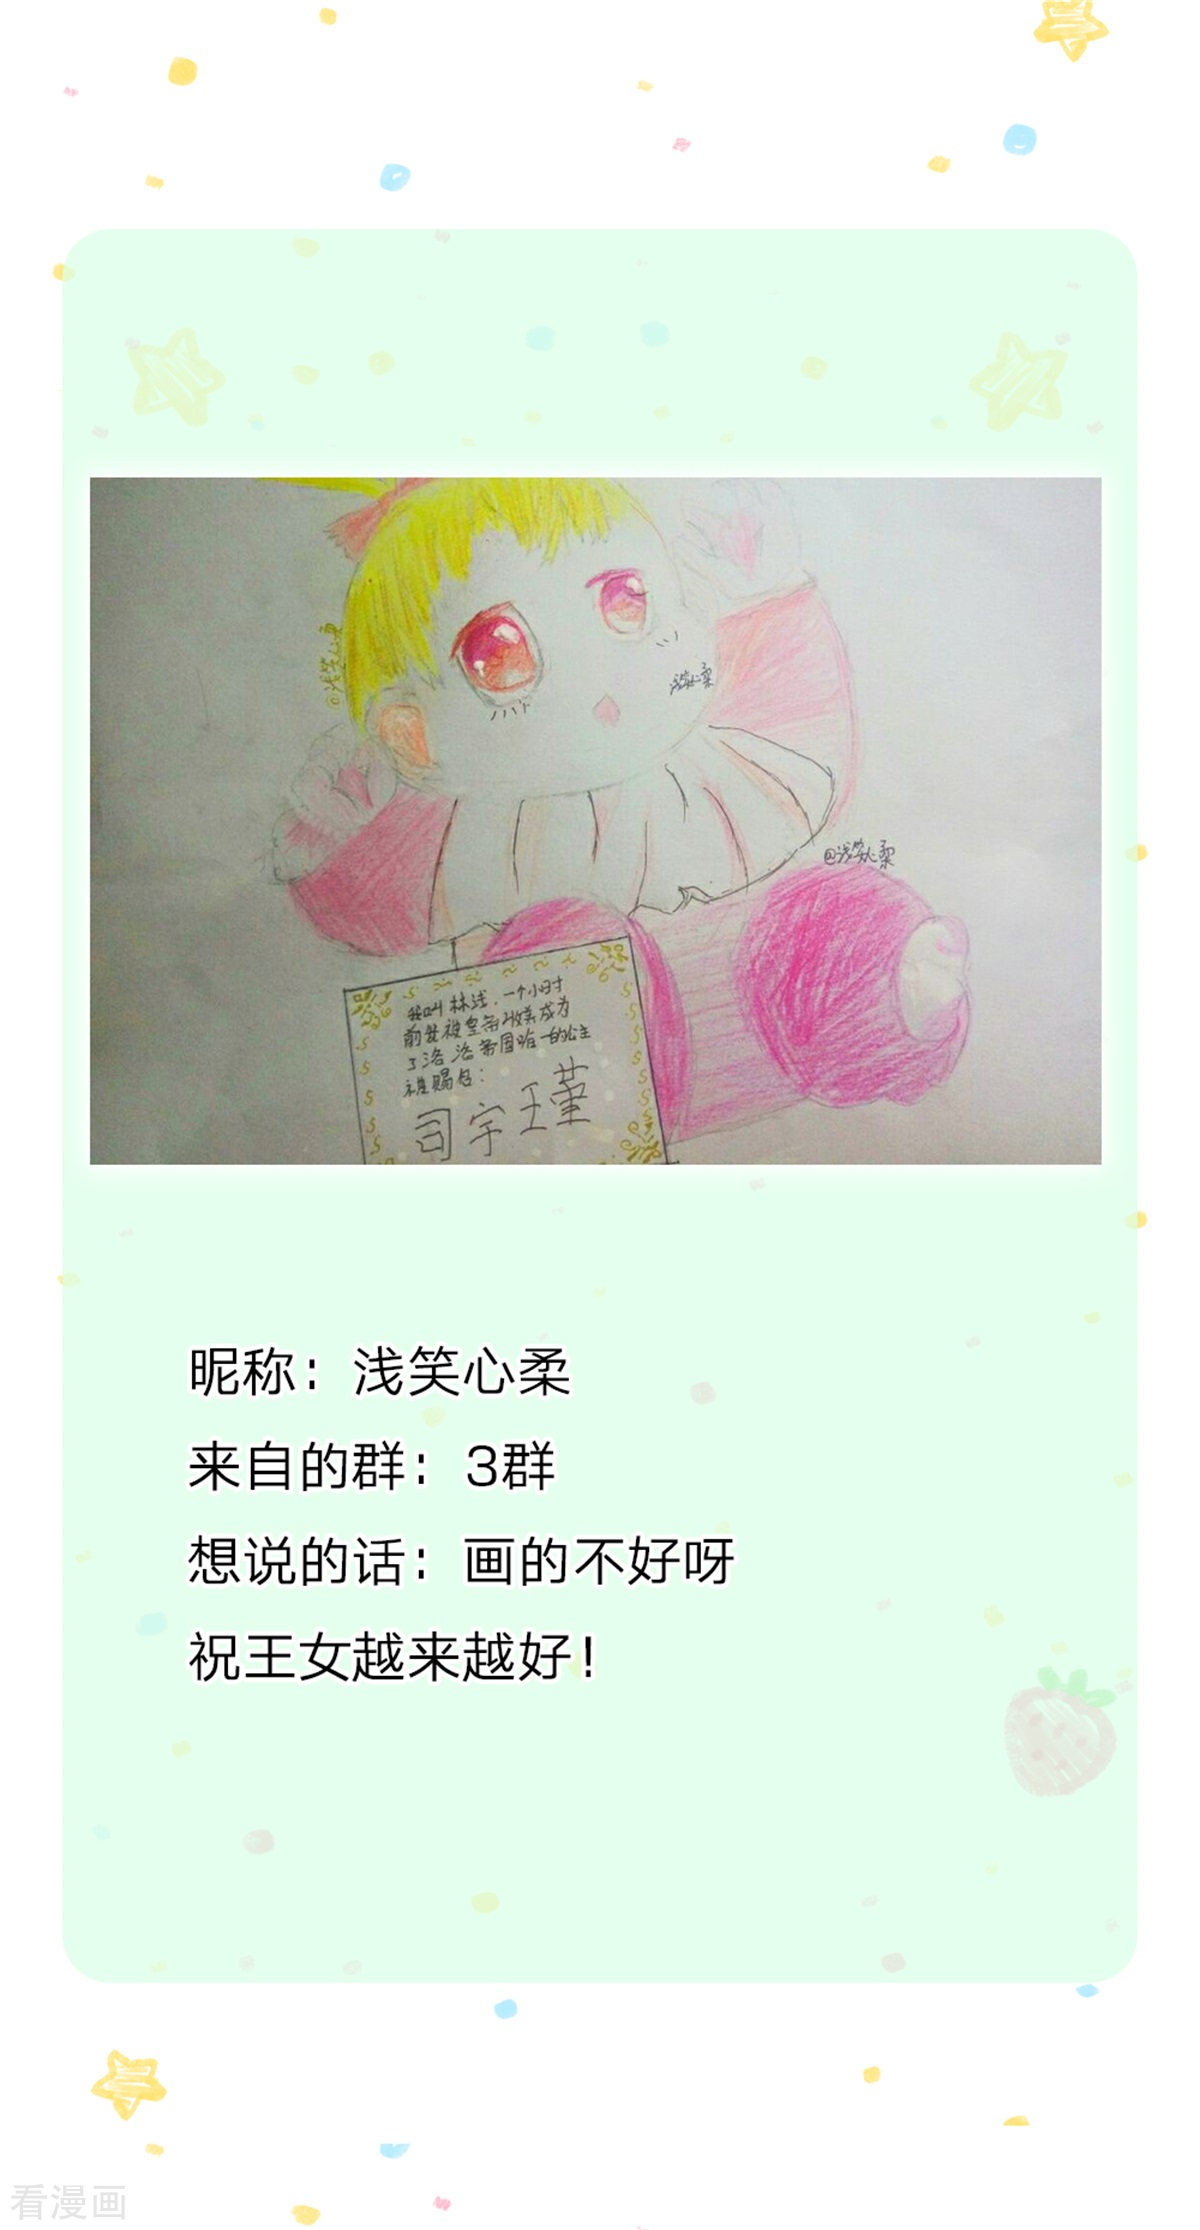 @浅笑心柔
浅笑心柔
@浅笑心柔
我叫林浅，一个小时
前我被皇帝收养成为
了洛洛帝国唯一的公主
被赐名：
司宇瑾
昵称：浅笑心柔
来自的群：3群
想说的话：画的不好呀
祝王女越来越好！
看漫画